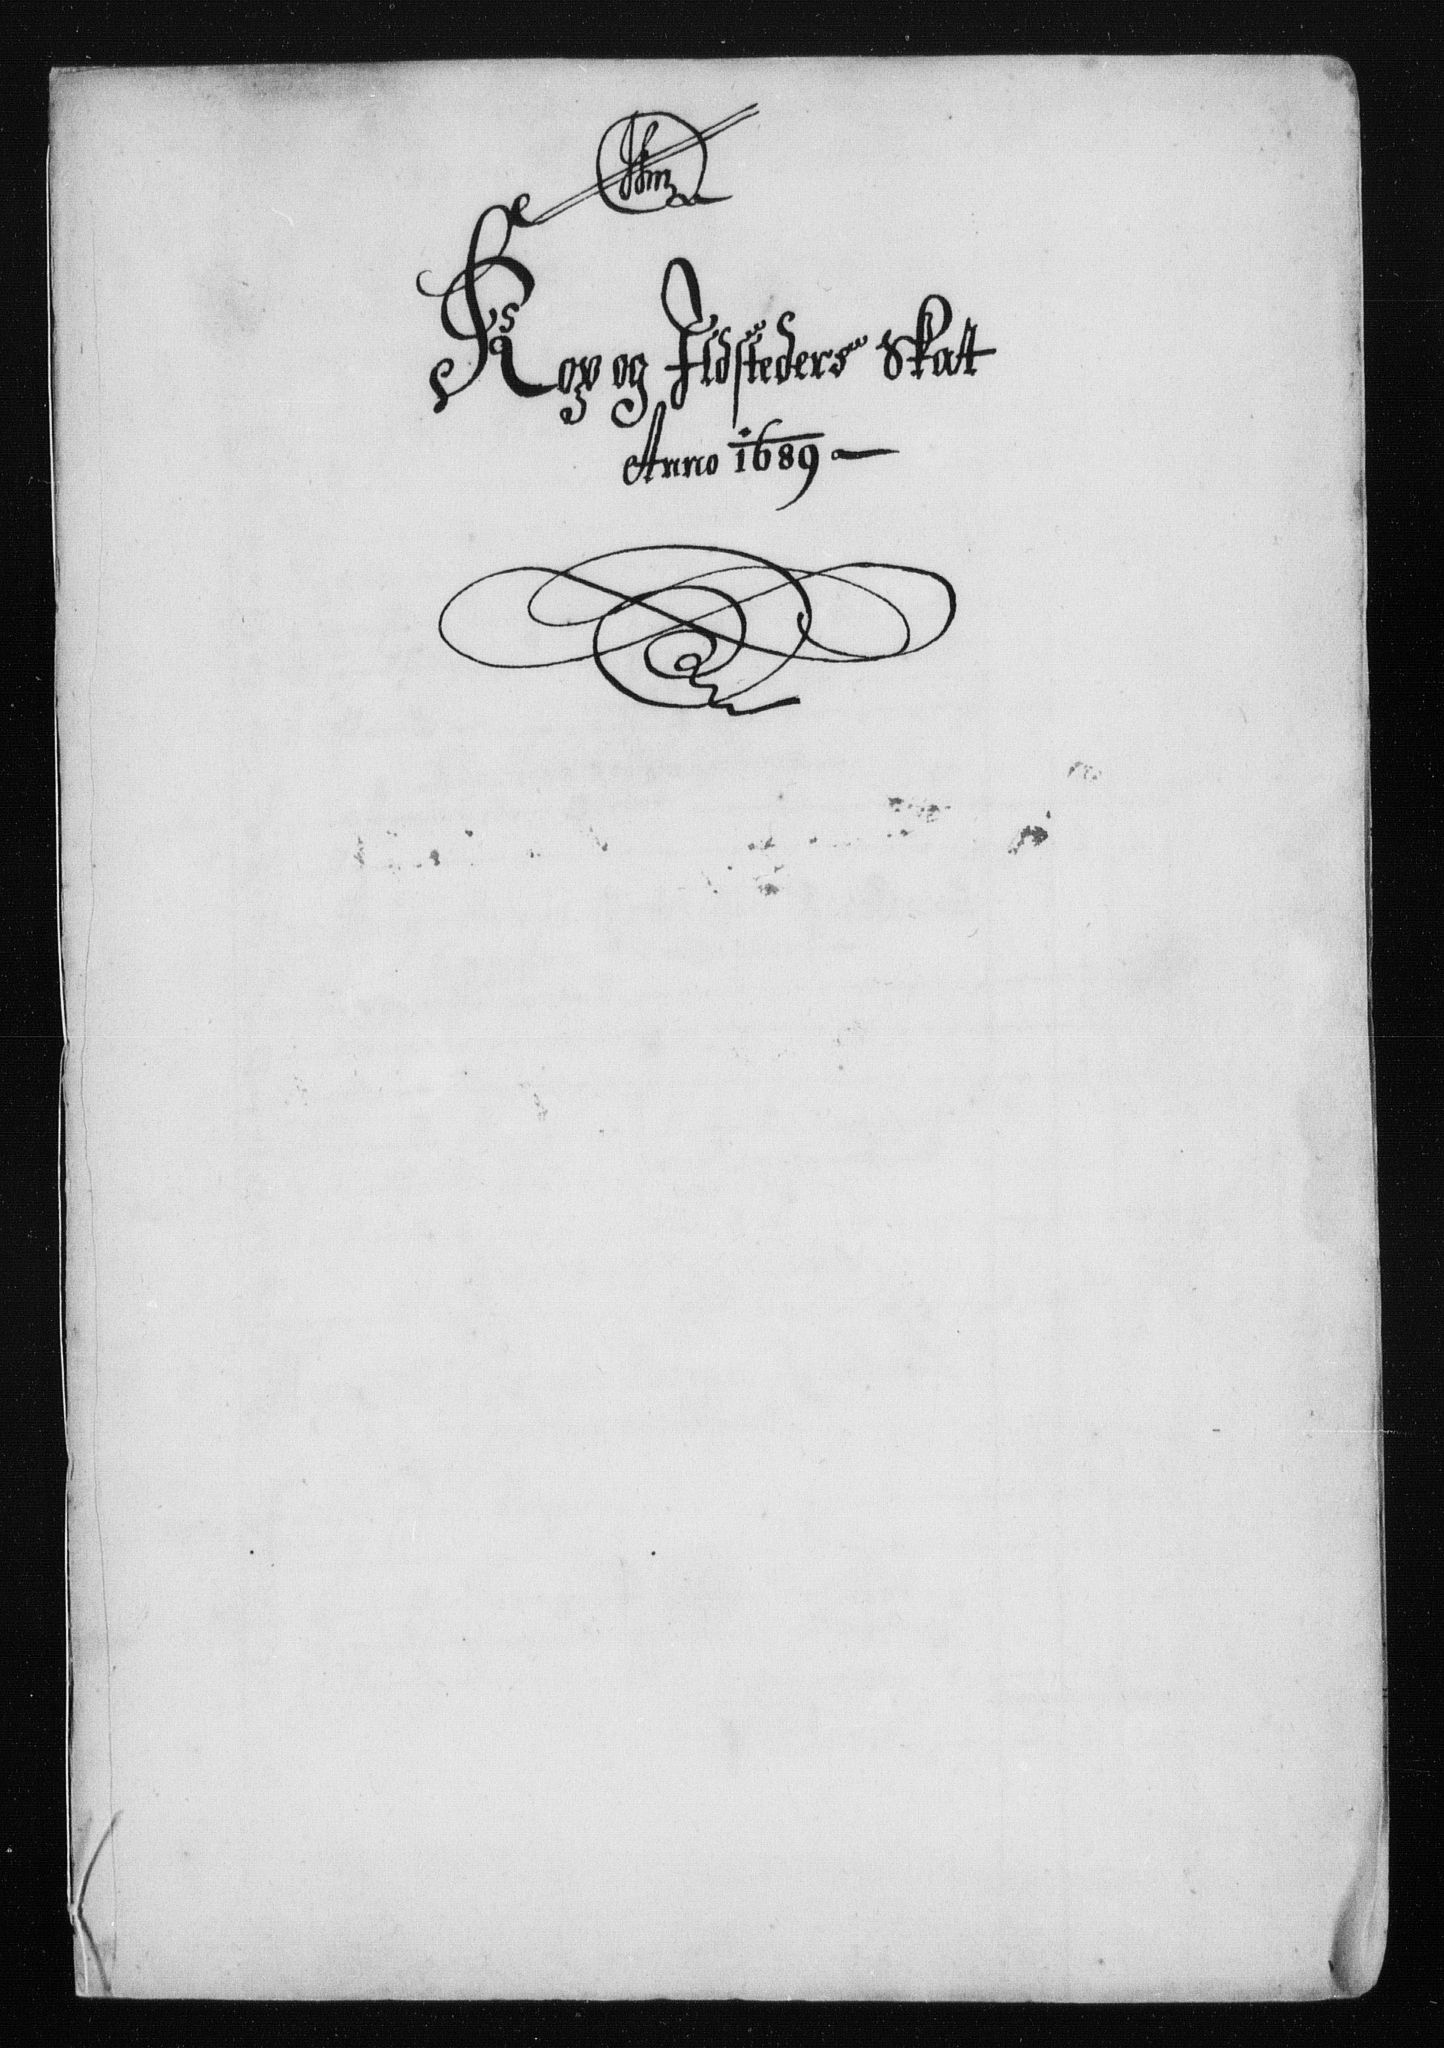 Kop og Ildsteders Skatt
Anno 1689